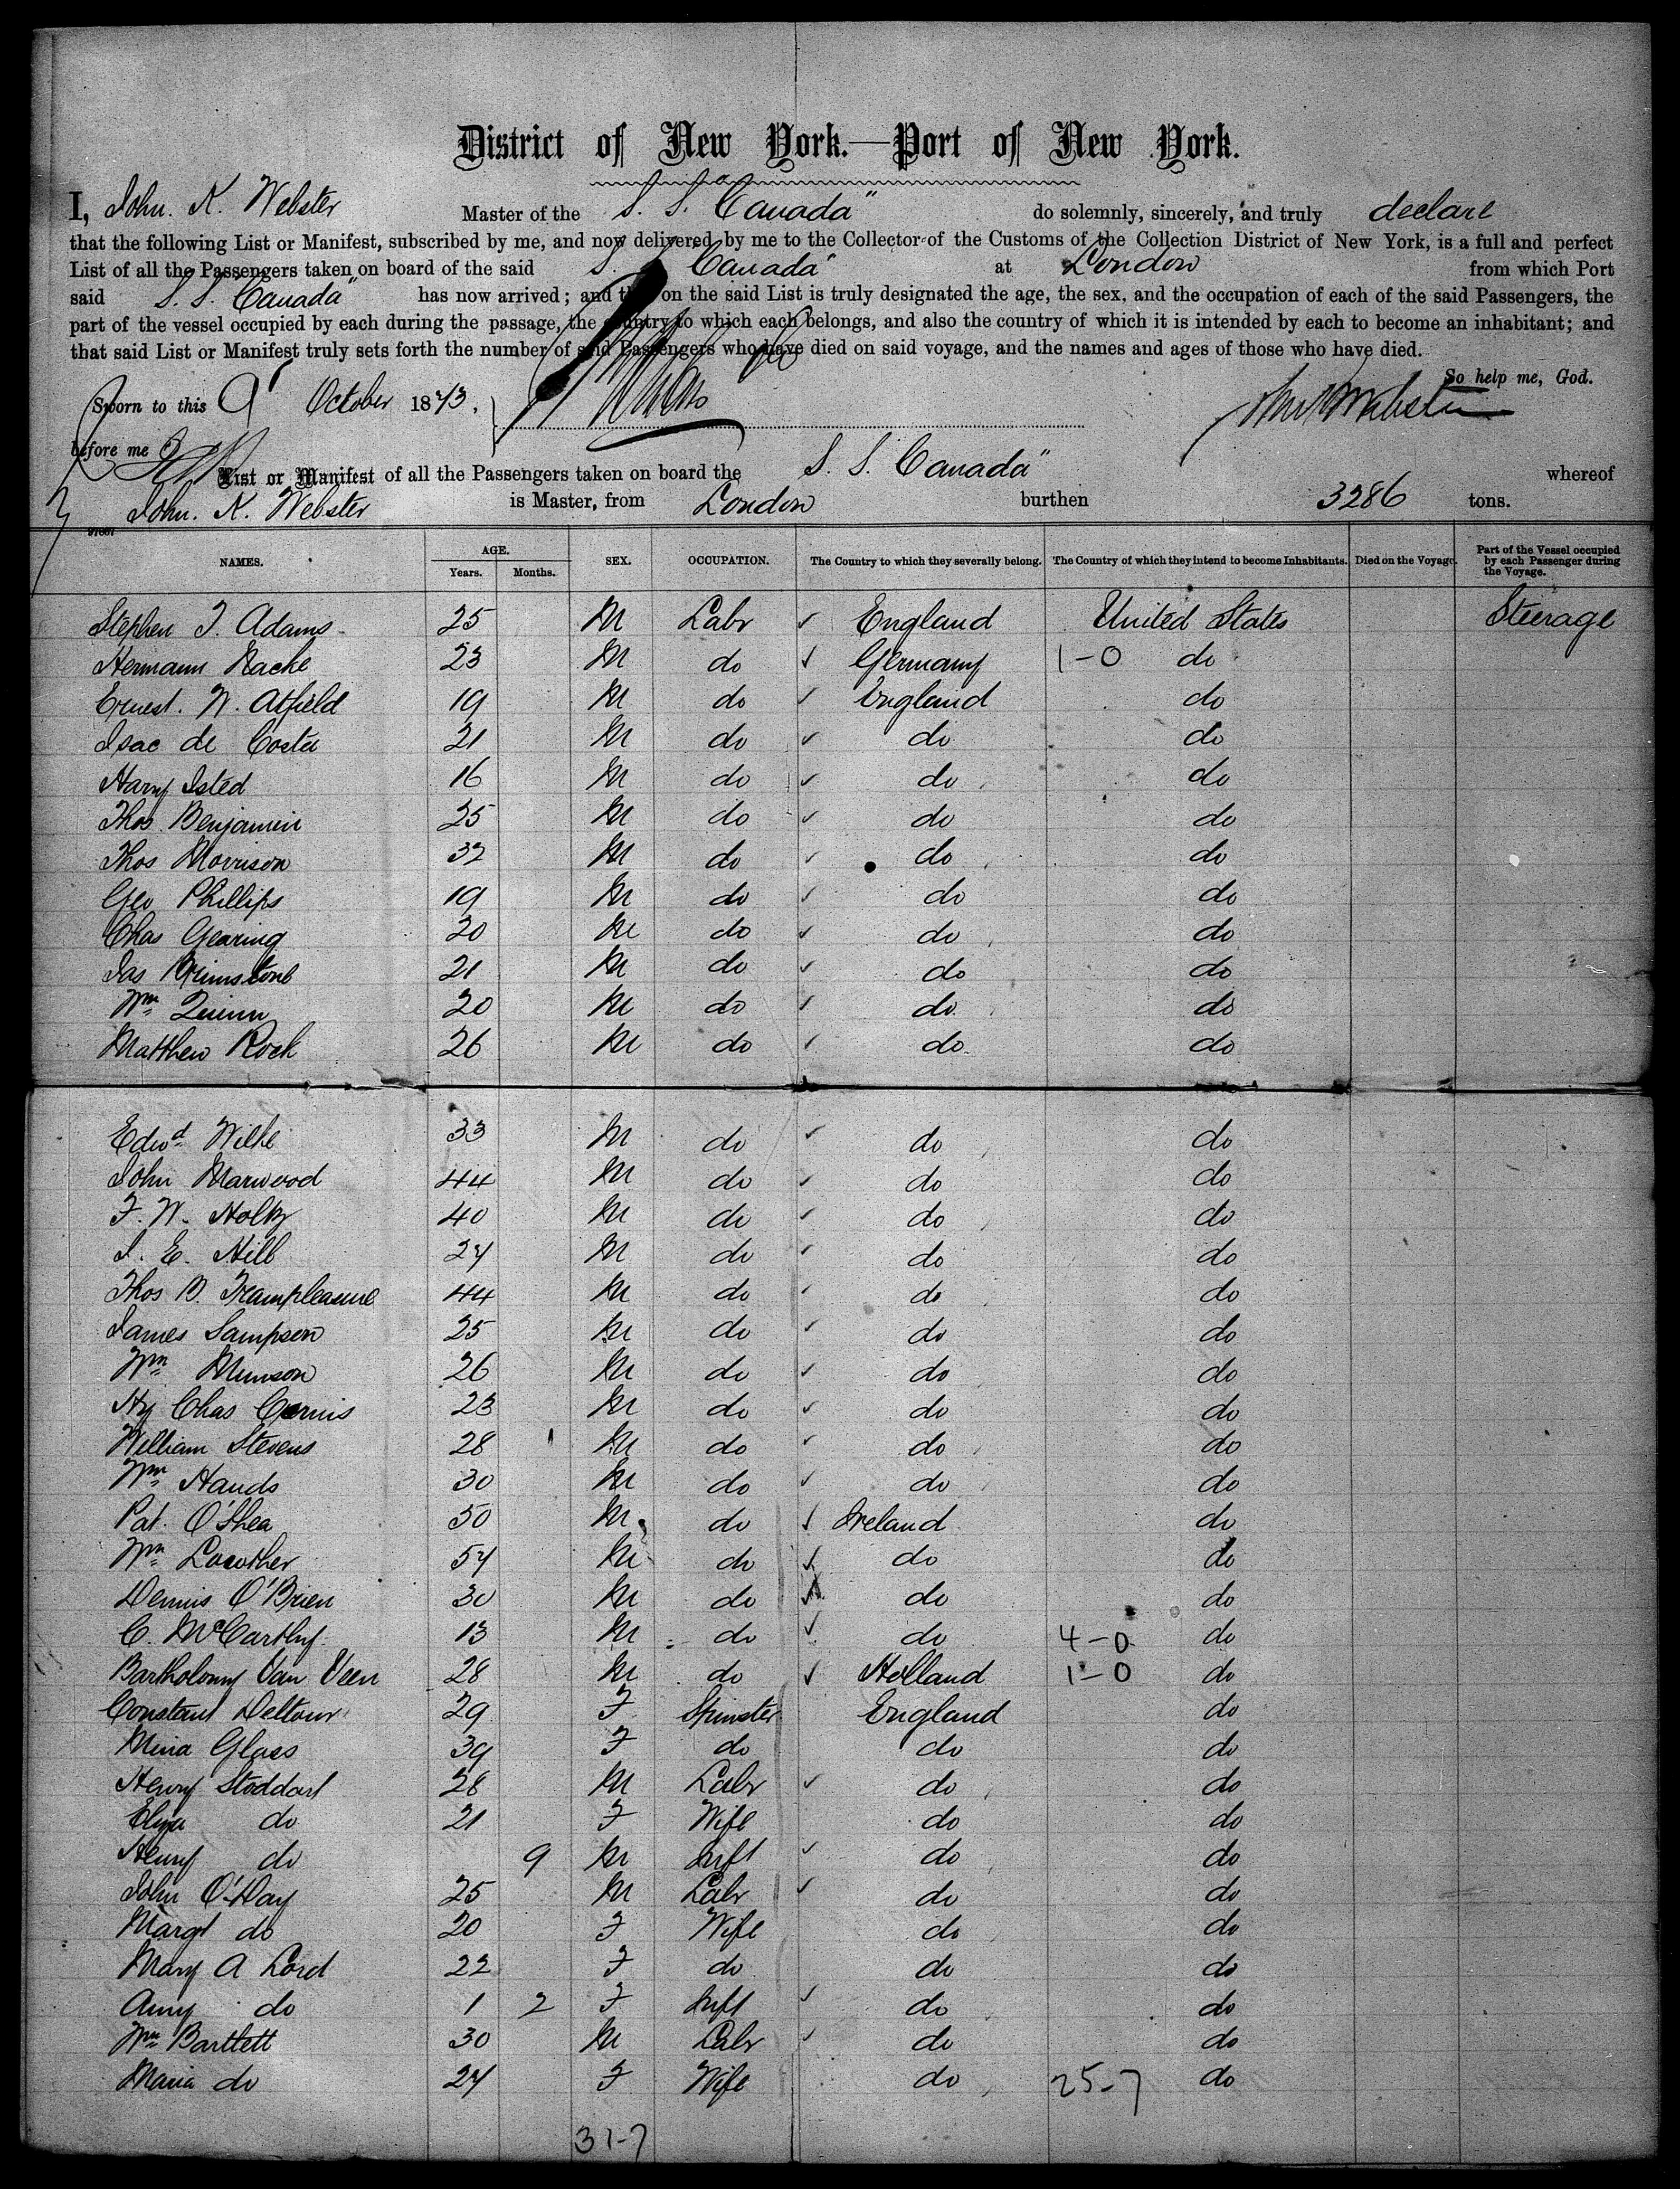 District of New York.—Port of New York.
I, John. K. Webster Master of the S. S. "Canada" do solemnly, sincerely, and truly declare
that the following List or Manifest, subscribed by me, and now delivered by me to the Collector of the Customs of the Collection District of New York, is a full and perfect
List of all the Passengers taken on board of the said S. S. "Canada" at London from which Port
said S. S. "Canada" has now arrived; and that on the said List is truly designated the age, the sex, and the occupation of each of the said Passengers, the
part of the vessel occupied by each during the passage, the country to which each belongs, and also the country of which it is intended by each to become an inhabitant; and
that said List or Manifest truly sets forth the number of said Passengers who have died on said voyage, and the names and ages of those who have died.
So help me, God.
Sworn to this 9 October 18
before me
List or Manifest of all the Passengers taken on board the S. S. "Canada" whereof
John. K. Webster is Master, from London burthen 3286 tons.
NAMES. AGE. Years. Months. SEX. OCCUPATION. The Country to which they severally belong. The Country of which they intend to become Inhabitants. Died on the Voyage. Part of the Vessel occupied by each Passenger during the Voyage.
Stephen J. Adams 25 M Labr ✓ England United States Steerage
Hermann Nache 23 M do ✓ Germany 1-0 do
Ernest. W. Atfield 19 M do ✓ England do
Isac de Costa 21 M do ✓ do do
Harry Isted 16 M do ✓ do do
Thos. Benjamin 25 M do ✓ do do
Thos Morrison 32 M do ✓ do do
Geo Phillips 19 M do ✓ do do
Chas Gearing 20 M do ✓ do do
Jas Grimstone 21 M do ✓ do do
Wm Quinn 20 M do ✓ do do
Matthew Rock 26 M do ✓ do do
Edwd Wilke 33 M do ✓ do do
John Marwood 44 M do ✓ do do
F. W. Holtz 40 M do ✓ do do
J. E. Hill 24 M do ✓ do do
Thos B. Trampleasure 44 M do ✓ do do
James Sampson 25 M do ✓ do do
Wm Munson 26 M do ✓ do do
Hy Chas 23 M do ✓ do do
William Stevens 28 M do ✓ do do
Wm Hands 30 M do ✓ do do
Pat. O'Shea 50 M do ✓ Ireland do
Wm Lowther 54 M do ✓ do do
Dennis O'Brien 30 M do ✓ do do
C. McCarthy 13 M do ✓ do 4-0 do
Bartholomy Van Veen 28 M do ✓ Holland 1-0 do
Constant Deltour 29 F Spinster England do
Mina Glass 39 F do do do
Henry Stoddart 28 M Labr ✓ do do
Eliza do 21 F Wife do do
Henry do 9 M Inft ✓ do do
John O'Day 25 M Labr ✓ do do
Margt do 20 F Wife do do
Mary A Lord 22 F do do do
Amy do 1 2 F Inft ✓ do do
Wm Bartlett 30 M Labr ✓ do do
Maria do 24 F Wife do 25-7 do
31-7